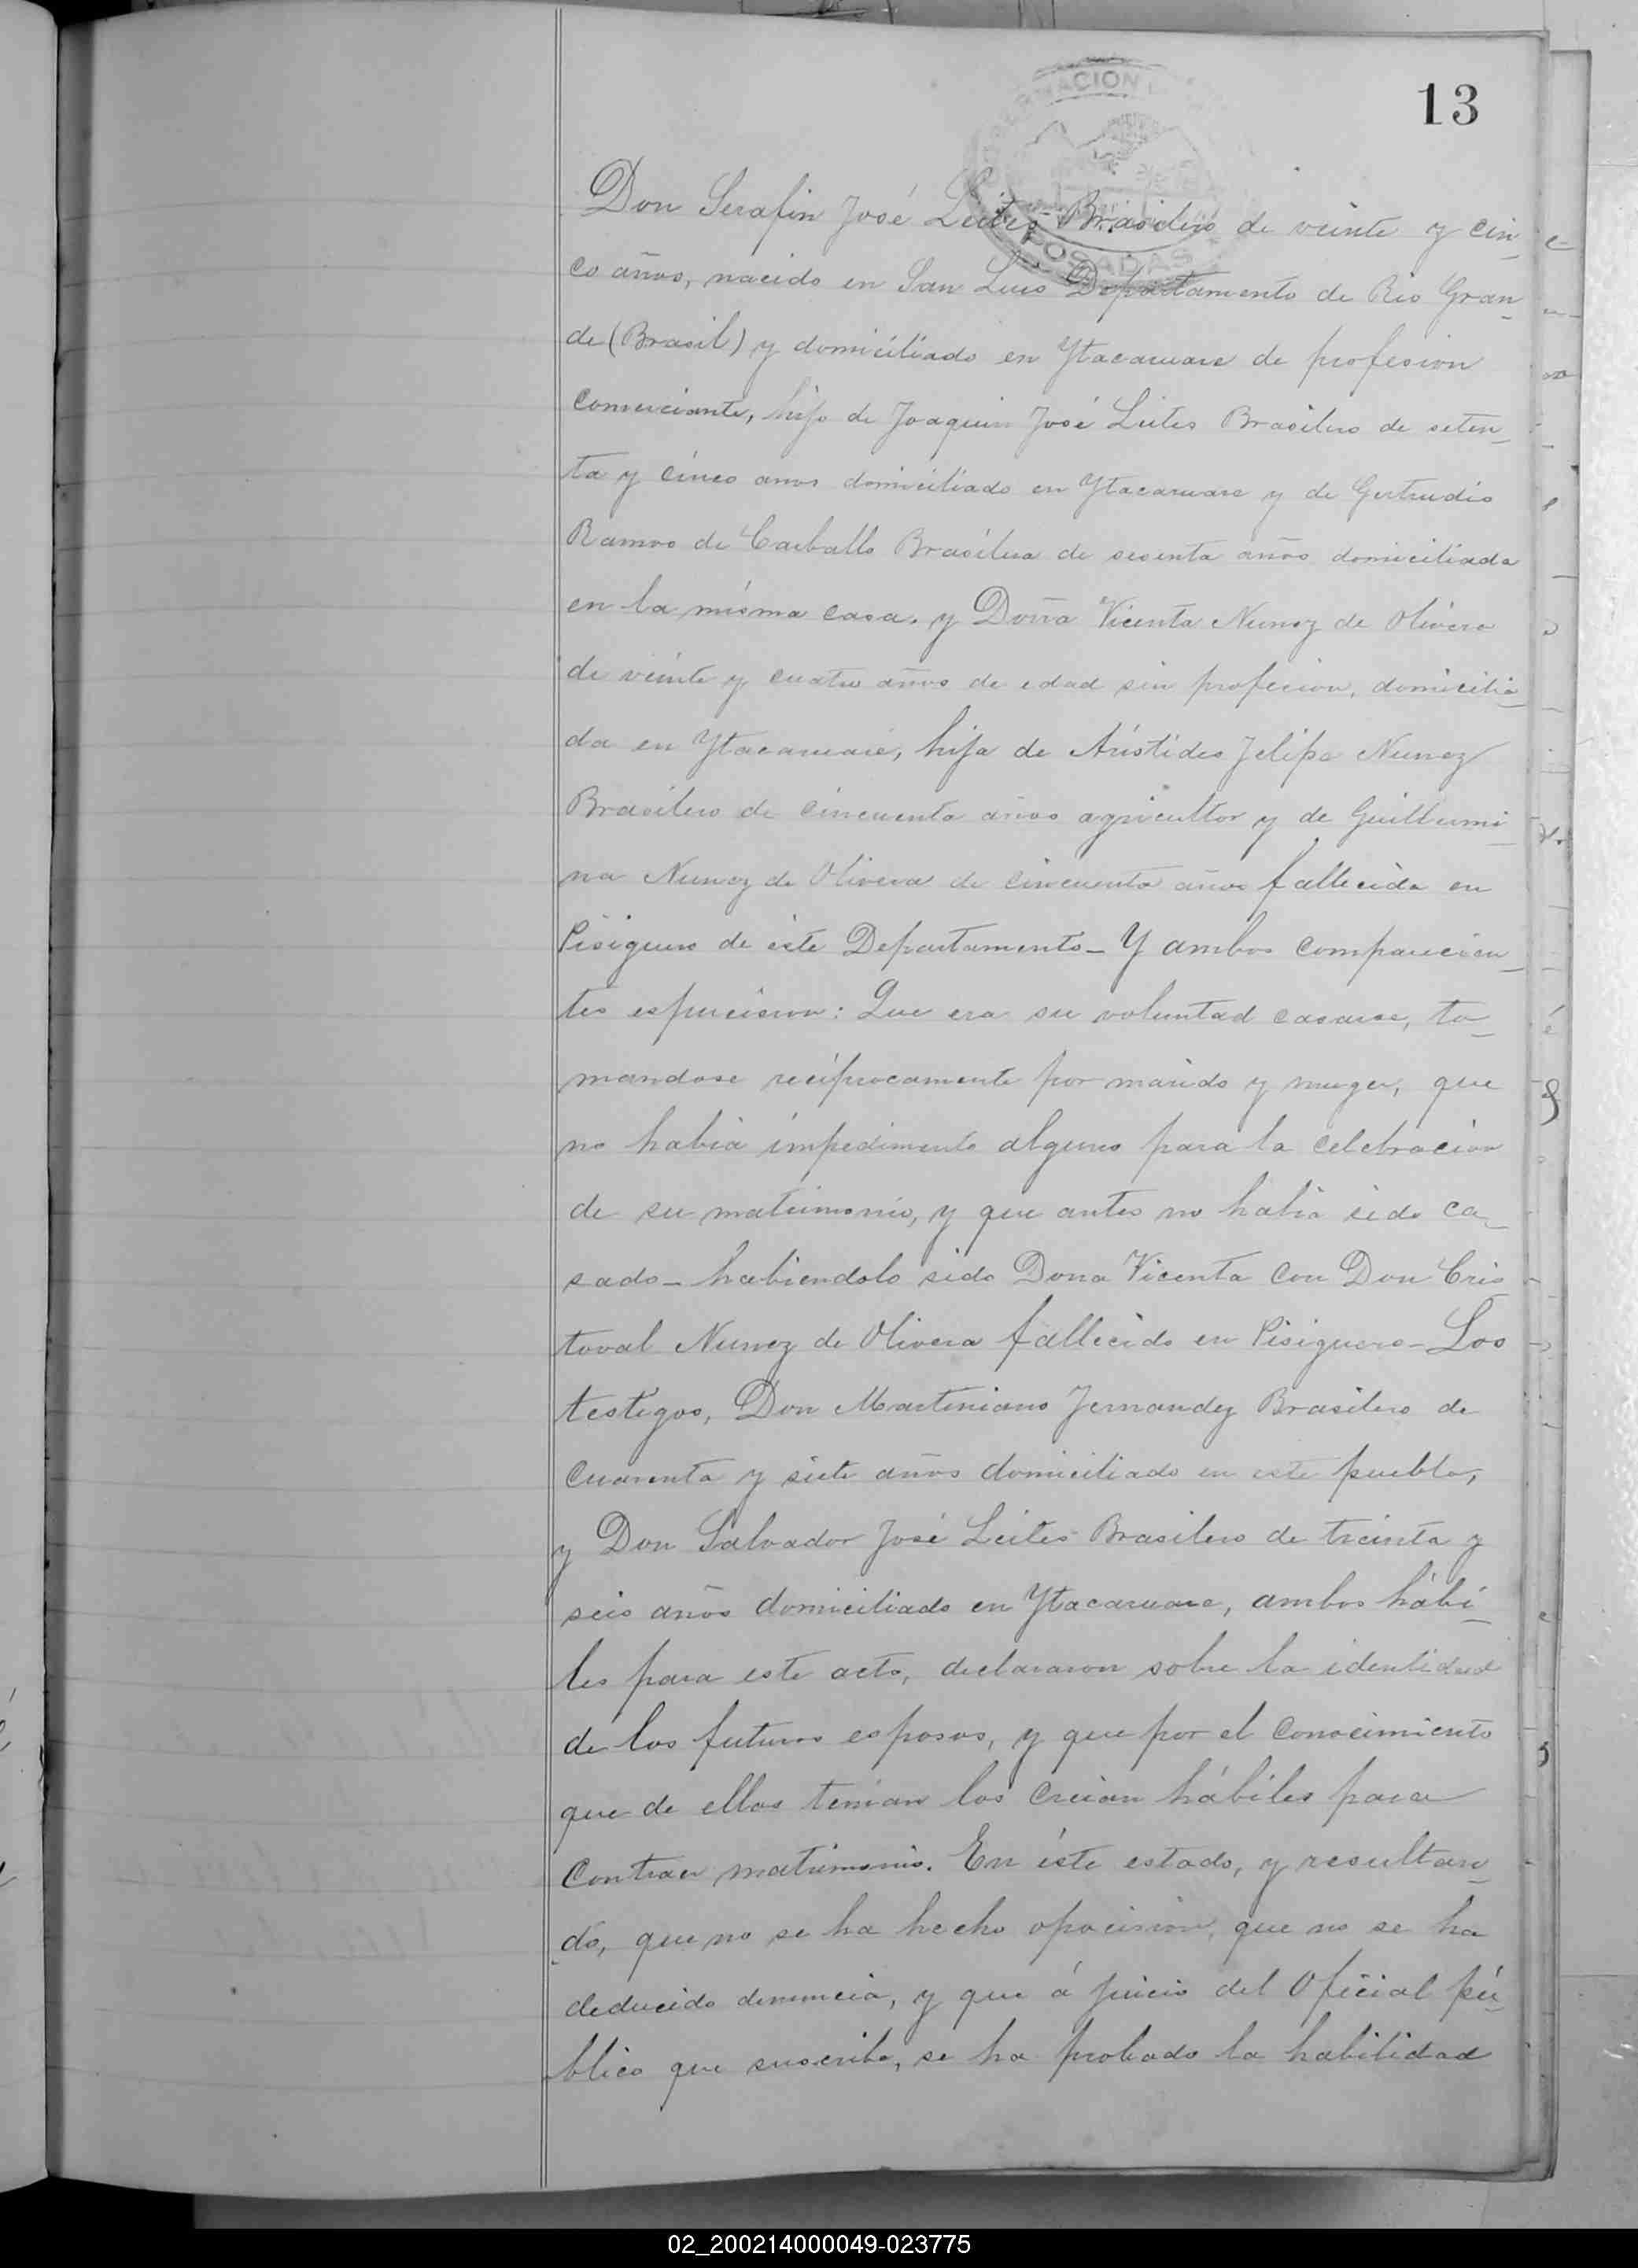 13
Don Serafin José Leites Brasilero de veinte y cin-
co años, nacido en San Luis Departamento de Rio Gran-
de (Brasil) y domiciliado en Ytacaruare de profesion
comerciante, hijo de Joaquin José Leites Brasilero de seten-
ta y cinco anos domiciliado en Ytacaruare y de Gertrudis
Ramos de Carballo Brasilera de sesenta años domiciliada
en la misma casa. y Doña Vicenta Nunez de Olivera
de veinte y cuatro años de edad sin profecion, domicilia-
da en Ytacaruaré, hija de Arístides Felipe Nunez
Brasilero de cincuenta años agricultor y de Guillermi-
na Nunez de Olivera de cincuenta años fallecida en
Pisiguero de este Departamento_ Y ambos comparecien-
tes espucieron: Que era su voluntad casarse, to-
mandose recíprocamente por marido y muger, que
no habia impedimento alguno para la celebracion
de su matrimonio, y que antes no habia sido ca-
sado_ habiendolo sido Dona Vicenta con Don Cris-
toval Nunez de Olivera fallecido en Pisiguero_ Los
testigos, Don Martiniano Fernandez Brasilero de
cuarenta y siete años domiciliado en este pueblo,
y Don Salvador José Leites Brasilero de treinta y
seis años domiciliado en Ytacaruare, ambos hábi-
les para este acto, declararon sobre la identidad
de los futuros esposos, y que por el conocimiento
que de ellos tenian los creian hábiles para
contraer matrimonio. En éste estado, y resultan-
do, que no se ha hecho opocision, que no se ha
deducido denuncia, y que á juicio del Oficial pú-
blico que suscribe, se ha probado la habilidad
POSADAS
02_200214000049-023775